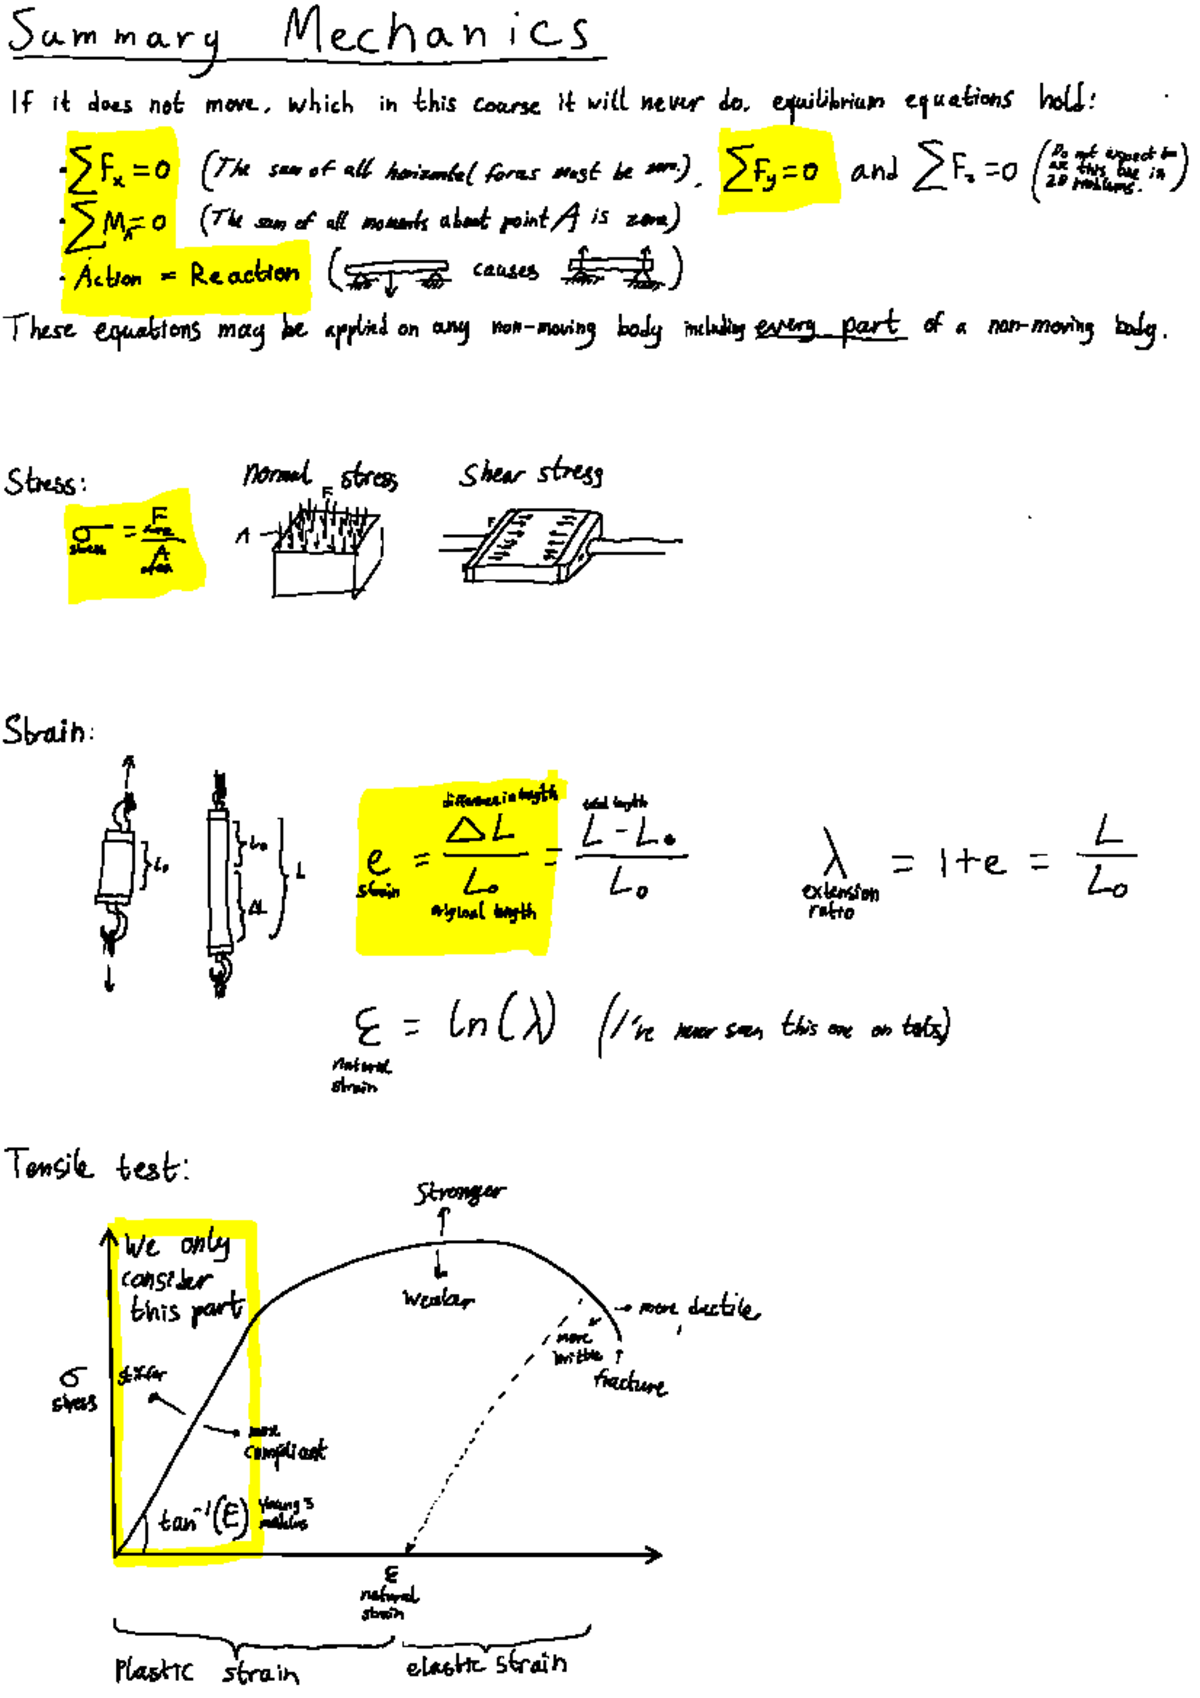 Summary Mechanics
If it does not move, which in this course it will never do, equilibrium equations hold:
· ∑Fx = 0 (The sum of all horizontal forces must be zero.), ∑Fy = 0 and ∑Fz = 0 (Do not expect to use this one in 2D problems.)
· ∑MA = 0 (The sum of all moments about point A is zero)
· Action = Reaction ( causes )
These equations may be applied on any non-moving body including every part of a non-moving body.
Stress:
normal stress
Shear stress
σ = F/A
stress
force
area
F
A
F
Strain:
L₀
L₀
ΔL
L
e = ΔL/L₀ = L-L₀/L₀
strain
difference in length
original length
total length
λ = 1+e = L/L₀
extension ratio
ε = ln(λ) (I've never seen this one on tests)
natural strain
Tensile test:
Stronger
We only
consider
this part
weaker
more ductile
more brittle
fracture
σ
stress
stiffer
more
compliant
tan⁻¹(E) young's modulus
ε
natural
strain
plastic strain
elastic strain